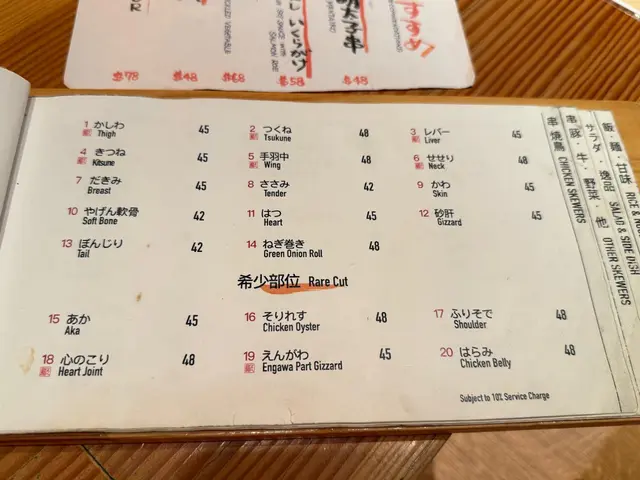 $78
$48
$68
$58
$48
おすすめ
明太子串
いくらがけ
SALMON ROE
1 かしわ 45
Thigh
2 つくね 48
Tsukune
3 レバー 45
Liver
4 きつね 45
Kitsune
5 手羽中 48
Wing
6 せせり 48
Neck
7 だきみ 45
Breast
8 ささみ 42
Tender
9 かわ 45
Skin
10 やげん軟骨 42
Soft Bone
11 はつ 45
Heart
12 砂肝 45
Gizzard
13 ぼんじり 42
Tail
14 ねぎ巻き 48
Green Onion Roll
希少部位 Rare Cut
15 あか 45
Aka
16 そりれす 48
Chicken Oyster
17 ふりそで 48
Shoulder
18 心のこり 48
Heart Joint
19 えんがわ 45
Engawa Part Gizzard
20 はらみ 48
Chicken Belly
Subject to 10% Service Charge
串焼鳥 CHICKEN SKEWERS
串豚・牛・野菜・他 OTHER SKEWERS
サラダ・逸品 SALAD & SIDE DISH
飯・麺・甘味 RICE &